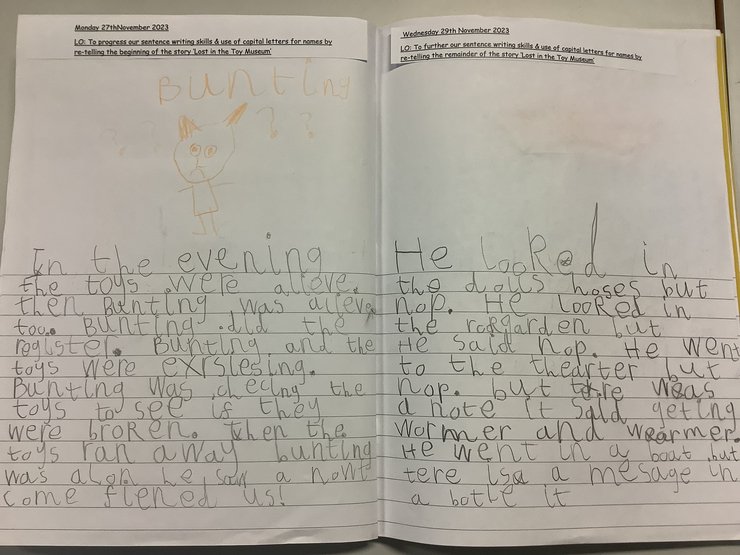 Monday 27thNovember 2023
LO: To progress our sentence writing skills & use of capital letters for names by
re-telling the beginning of the story 'Lost in the Toy Museum'
Bunting
? ? ? ?
In the evening
the toys were alieve.
then Bunting was alieve
too. Bunting did the
register. Bunting and the
toys were exrsiesing.
Bunting was checing the
toys to see if they
were broken. then the
toys ran away bunting
was alon he saw a nowt
come fiened us!
Wednesday 29th November 2023
LO: To further our sentence writing skills & use of capital letters for names by
re-telling the remainder of the story 'Lost in the Toy Museum'
He looked in
the dolls hoses but
nop. He looked in
the rofgarden but
He said nop. He went
to the thearter but
nop. but tere was
a note it said geting
wormer and wearmer.
He went in a boat but
tere is a mesage in
a botle it